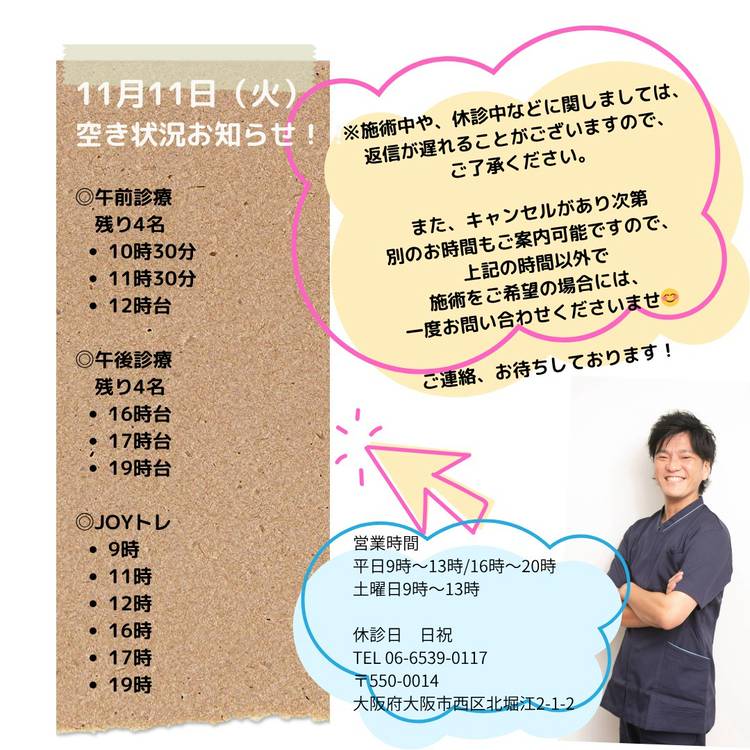 11月11日（火）
空き状況お知らせ！
◎午前診療
残り4名
• 10時30分
• 11時30分
• 12時台
◎午後診療
残り4名
• 16時台
• 17時台
• 19時台
◎JOYトレ
• 9時
• 11時
• 12時
• 16時
• 17時
• 19時
※施術中や、休診中などに関しましては、
返信が遅れることがございますので、
ご了承ください。
また、キャンセルがあり次第
別のお時間もご案内可能ですので、
上記の時間以外で
施術をご希望の場合には、
一度お問い合わせくださいませ😊
ご連絡、お待ちしております！
営業時間
平日9時〜13時/16時〜20時
土曜日9時〜13時
休診日　日祝
TEL 06-6539-0117
〒550-0014
大阪府大阪市西区北堀江2-1-2